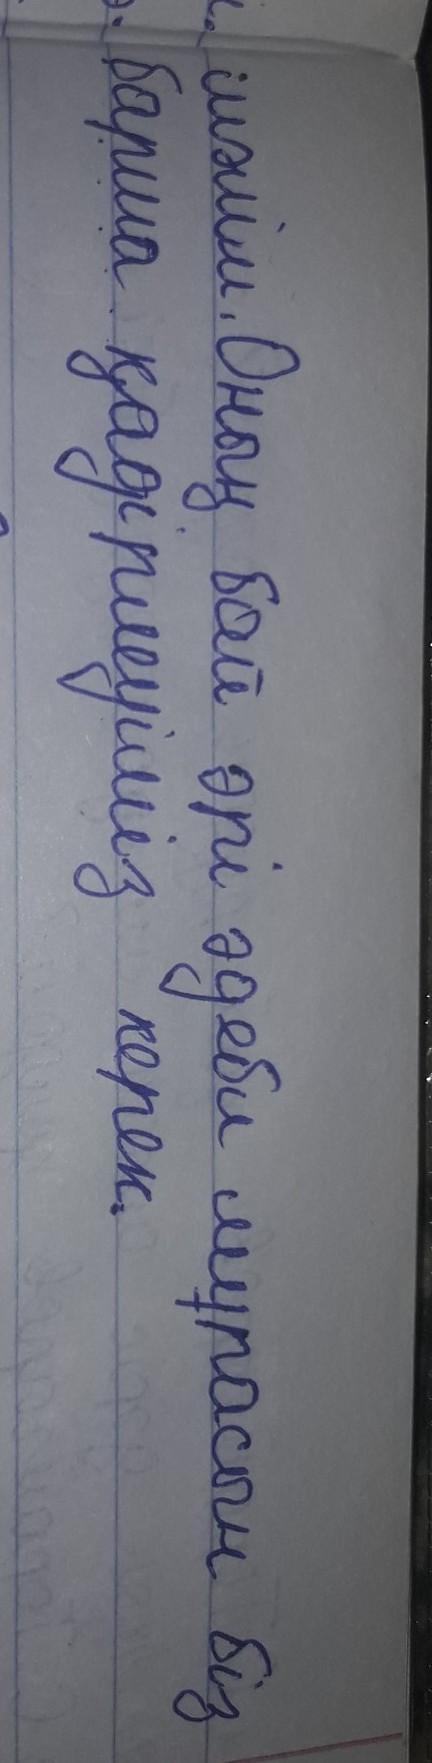 мәлім. Оның бай әрі әдеби мұрасын біз
барша қадірлеуіміз керек.